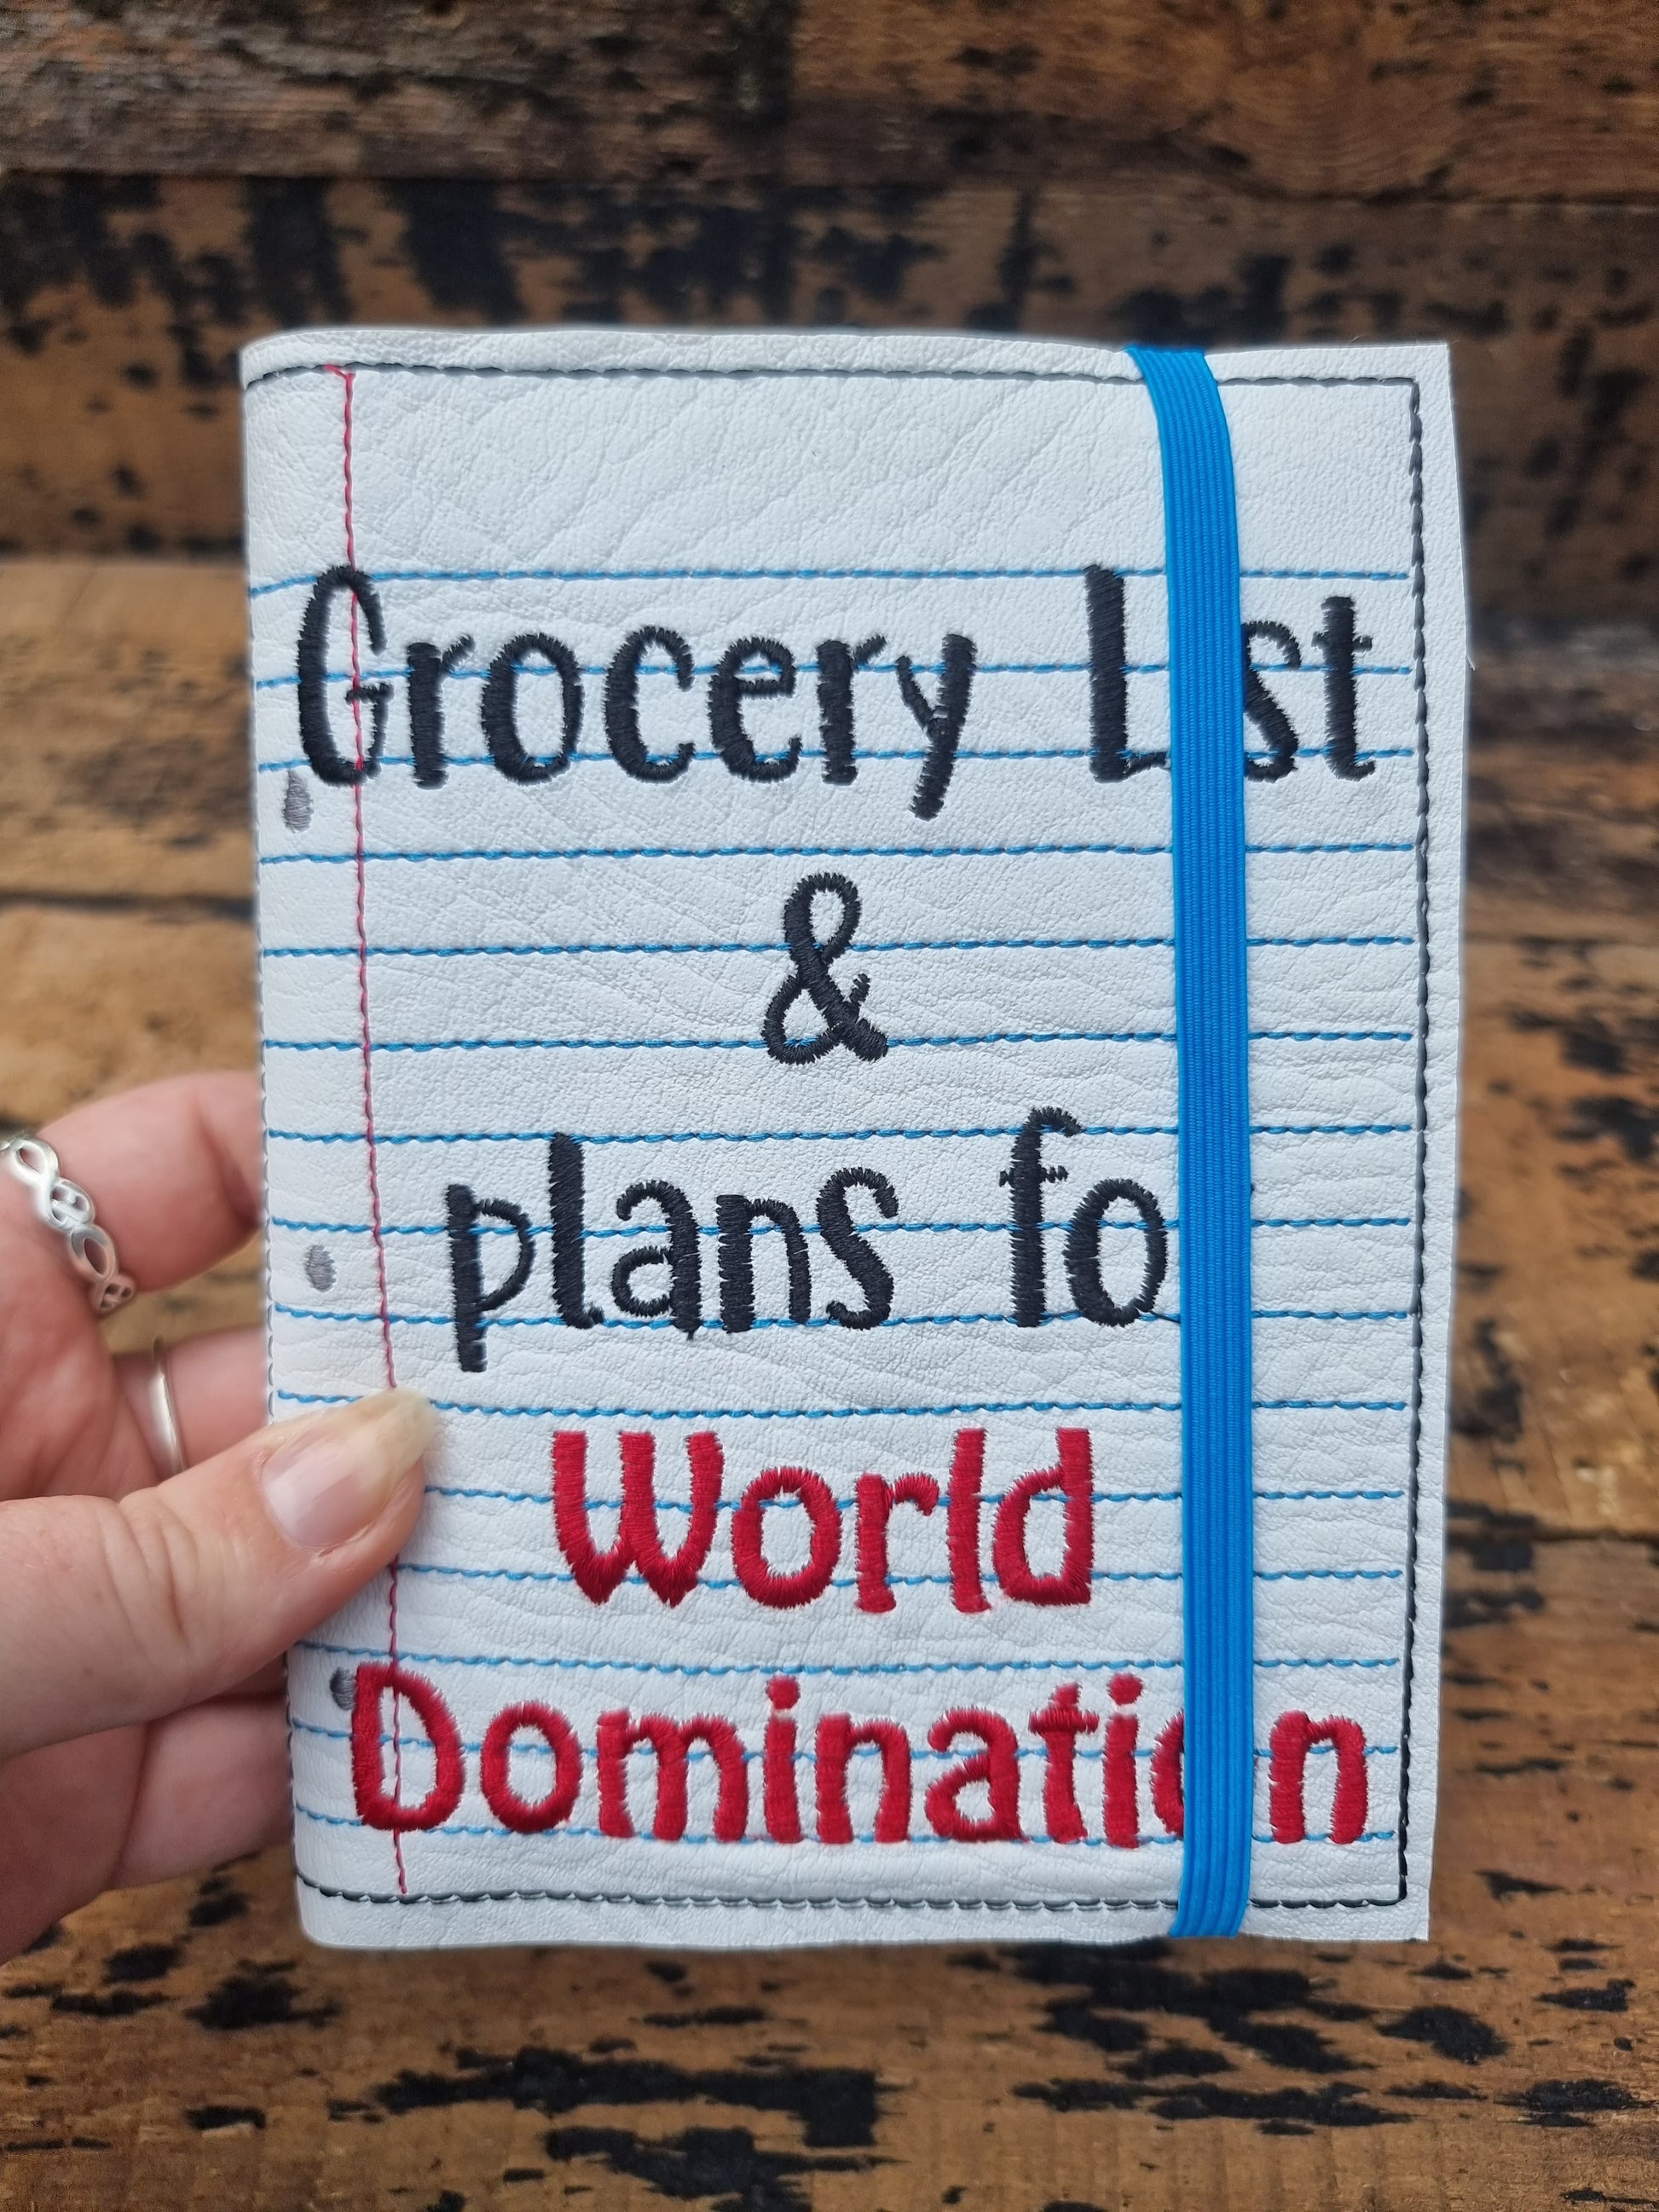 Grocery List
&
plans for
World
Domination